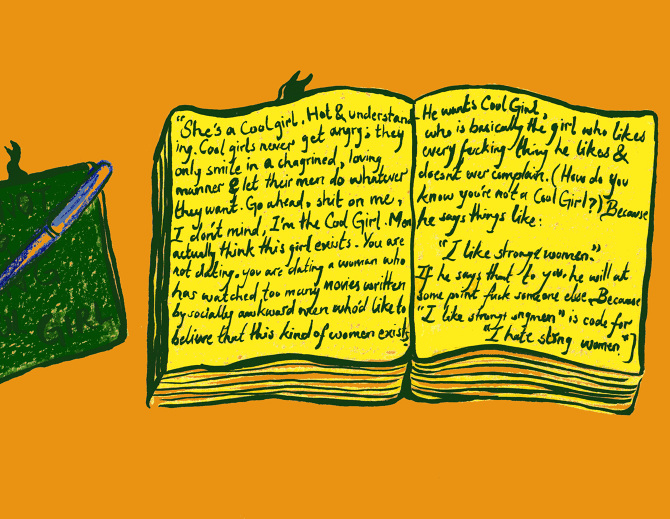 "She's a Cool girl. Hot & understand
ing. Cool girls never get angry; they
only smile in a chagrined, loving
manner & let their men do whatever
they want. Go ahead, shit on me,
I don't mind, I'm the Cool Girl. Men
actually think this girl exists. You are
not dating, you are dating a woman who
has watched too many movies written
by socially awkward men who'd like to
believe that this kind of women exists
He wants Cool Girl,
who is basically the girl who likes
every fucking thing he likes &
doesn't ever complain. (How do you
know you're not a Cool Girl?) Because
he says things like:
"I like strong women."
If he says that to you, he will at
some point fuck someone else. Because
"I like strong women" is code for
"I hate strong women."]